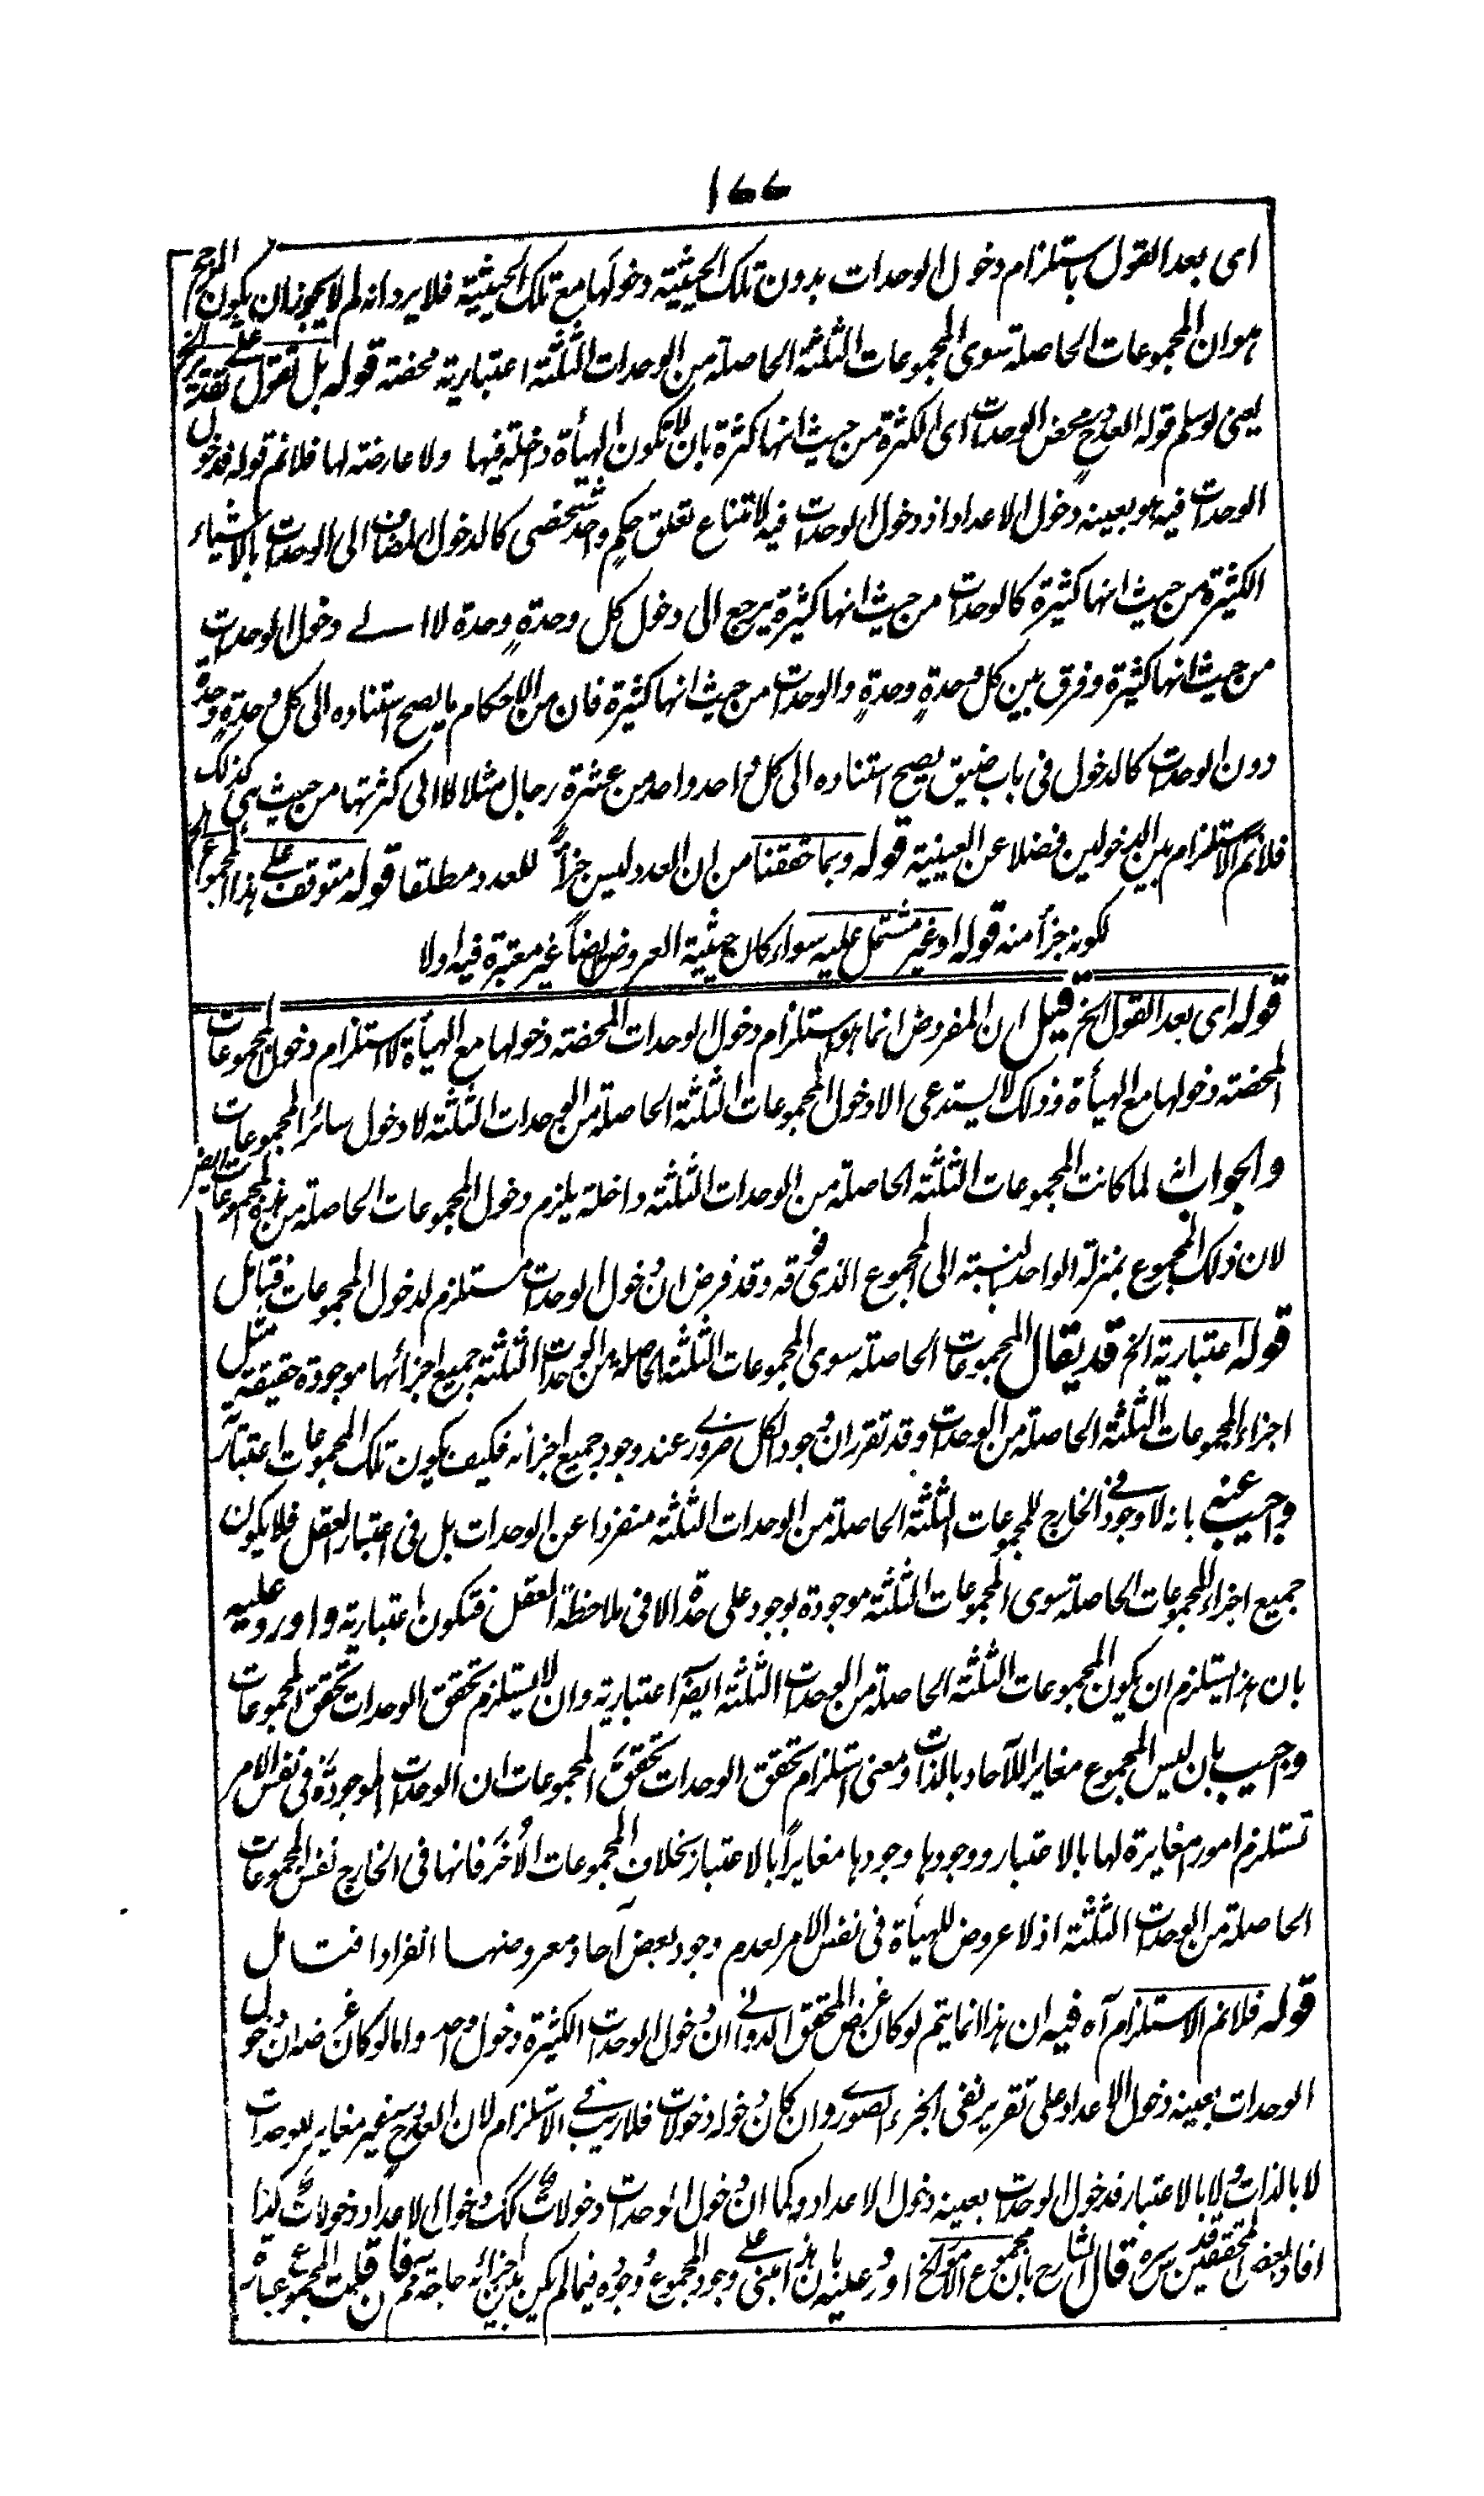 ١٧٧
اى بعد القول باستلزام دخول الوحدات بدون تلك الحيثية دخولها مع تلك الحيثية فلا يرد انه لم لا يجوز ان يكون المرجح
هو ان المجموعات الحاصلة سوى المجموعات الثلثة الحاصلة من الوحدات الثلثة اعتبارية محضته قوله بل نقول على تقدير الخ
يعنى لو سلم قوله العدد محض الوحدات اى الكثرة من حيث انها كثرة بان لا تكون الهيأة داخلة فيها ولا عارضة لها فلا نم قوله فدخول
الوحدات فيه هو بعينه دخول الاعداد اذ دخول الوحدات فيه لامتناع تعلق حكم واحد شخصى كالدخول المضاف الى الوحدات بالاشياء
الكثيرة من حيث انها كثيرة كالوحدات من حيث انها كثيرة يرجع الى دخول كل وحدةٍ وحدة لا الى دخول الوحدات
من حيث انها كثيرة وفرق بين كل وحدةٍ وحدةٍ والوحدات من حيث انها كثيرة فان من الاحكام ما يصح استناده الى كل وحدةٍ وحدة
دون الوحدات كالدخول فى باب ضيق يصح استناده الى كل واحد واحد من عشرة رجال مثلا لا الى كثرتها من حيث هى كذلك
فلا نم الاستلزام بين الدخولين فضلا عن العينية قوله وبما حققنا من ان العدد ليس جزأ للعدد مطلقا قوله متوقف على هذا المجموع الخ
لكونه جزأ منه قوله او غير مشتمل عليه سواء كان حيثية العروض ايضاً غير معتبرة فيه اولا
قوله اى بعد القول الخ قيل ان المفروض انما هو استلزام دخول الوحدات المحضته دخولها مع الهيأة لا استلزام دخول المجموعات
المحضته دخولها مع الهيأة وذلك لا يستدعى الا دخول المجموعات الثلثة الحاصلة من الوحدات الثلثة لا دخول سائر المجموعات
والجواب انه لما كانت المجموعات الثلثة الحاصلة من الوحدات الثلثة داخلة يلزم دخول المجموعات الحاصلة من هذه المجموعات ايضا
لان ذلك المجموع بمنزلة الواحد بالنسبة الى المجموع الذى فوقه وقد فرض ان دخول الوحدات مستلزم لدخول المجموعات فتأمل
قوله اعتبارية الخ قد يقال المجموعات الحاصلة سوى المجموعات الثلثة الحاصلة من الوحدات الثلثة جميع اجزائها موجودة حقيقة مثل
اجزاء المجموعات الثلثة الحاصلة من الوحدات وقد تقرر ان وجود الكل ضرورى عند وجود جميع اجزائه فكيف يكون تلك المجموعات اعتبارية
واجيب عنه بانه لا وجود فى الخارج للمجموعات الثلثة الحاصلة من الوحدات الثلثة منفردا عن الوحدات بل فى اعتبار العقل فلا يكون
جميع اجزاء المجموعات الحاصلة سوى المجموعات الثلثة موجودة بوجود على حدة الا فى ملاحظة العقل فتكون اعتبارية واورد عليه
بان هذا يستلزم ان يكون المجموعات الثلثة الحاصلة من الوحدات الثلثة ايضا اعتبارية وان لا يستلزم تحقق الوحدات تحقق المجموعات
واجيب بان ليس المجموع مغايرا للآحاد بالذات ومعنى استلزام تحقق الوحدات تحققَ المجموعات ان الوحدات الموجودة فى نفس الامر
تستلزم امورا مغايرة لها بالاعتبار ووجودها وجودها مغايراً بالاعتبار بخلاف المجموعات الأُخَر فانها فى الخارج نفس المجموعات
الحاصلة من الوحدات الثلثة اذ لا عروض للهيأة فى نفس الامر لعدم وجود بعض آحاد معروضها انفرادا فتامل
قوله فلا نم الاستلزام آه فيه ان هذا انما يتم لو كان غرض المحقق الدوانى ان دخول الوحدات الكثيرة دخول واحد واما لو كان غرضه ان دخول
الوحدات بعينه دخول الاعداد على تقرير نفى الجزء الصورى وان كان دخوله دخولات فلا ريب فى الاستلزام لان العدد ح غير مغاير للوحدات
لا بالذات ولا بالاعتبار فدخول الوحدات بعينه دخول الاعداد وكما ان دخول الوحدات دخولات كك دخول الاعداد دخولات كذا
افاد بعض المحققين قدس سره قال الشارح بان مجموع الامور الخ اورد عليه بان هذا مبنى على وجود المجموع وجوده فيما لم يكن بين اجزائه حاجة مم فان قلت المجموع عبارة